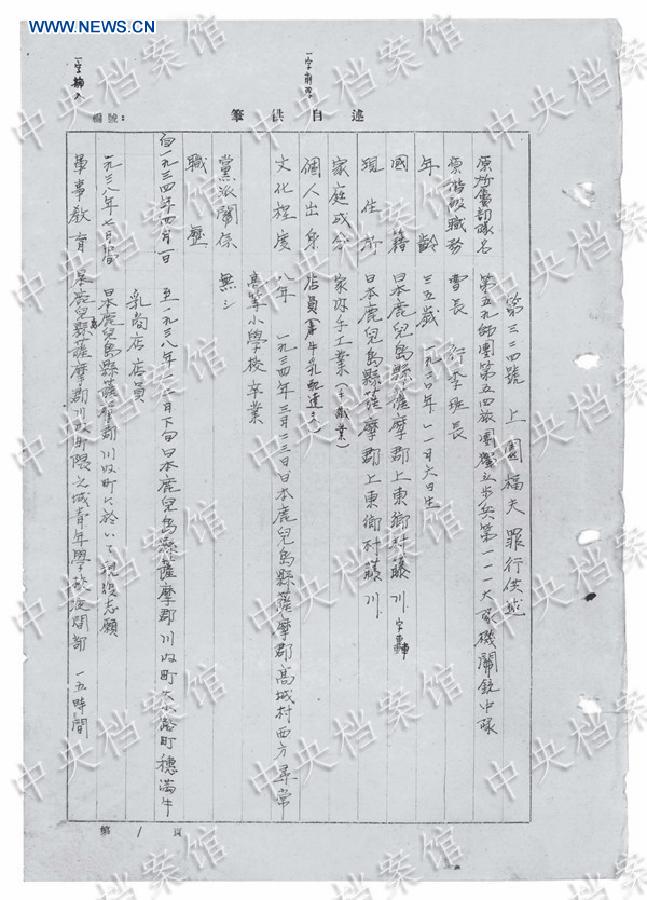 WWW.NEWS.CN
中央档案馆
述自供筆
編號：
第三二四號 上園福夫罪行供述
原所屬部隊名 第五九師團第五四旅團獨立步兵第一一一大隊機關銃中隊
原階級職務 曹長 行李班長
年齡 三五歲 一九二〇年一一月六日生
國籍 日本鹿兒島縣薩摩郡上東鄉村藤川
現住所 日本鹿兒島縣薩摩郡上東鄉村藤川
家庭成分 家內手工業
個人出身 店員（牛乳配達）
文化程度 八年 一九三四年三月二三日日本鹿兒島縣薩摩郡高城村西方尋常
高等小學校卒業
黨派關係 無シ
職歷
自一九三四年四月一日 至一九三八年 月下旬日本鹿兒島縣薩摩郡川內町大小路町穗滿牛
乳商店店員
一九三八年七月 日本鹿兒島縣薩摩郡川內町ニ於いて現役志願
軍事教育 鹿兒島縣薩摩郡川內町隈之城青年學校夜間部 一五時間
第1頁